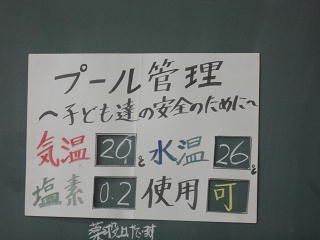 プール管理
～子ども達の安全のために～
気温 20℃ 水温 26℃
塩素 0.2 使用 可